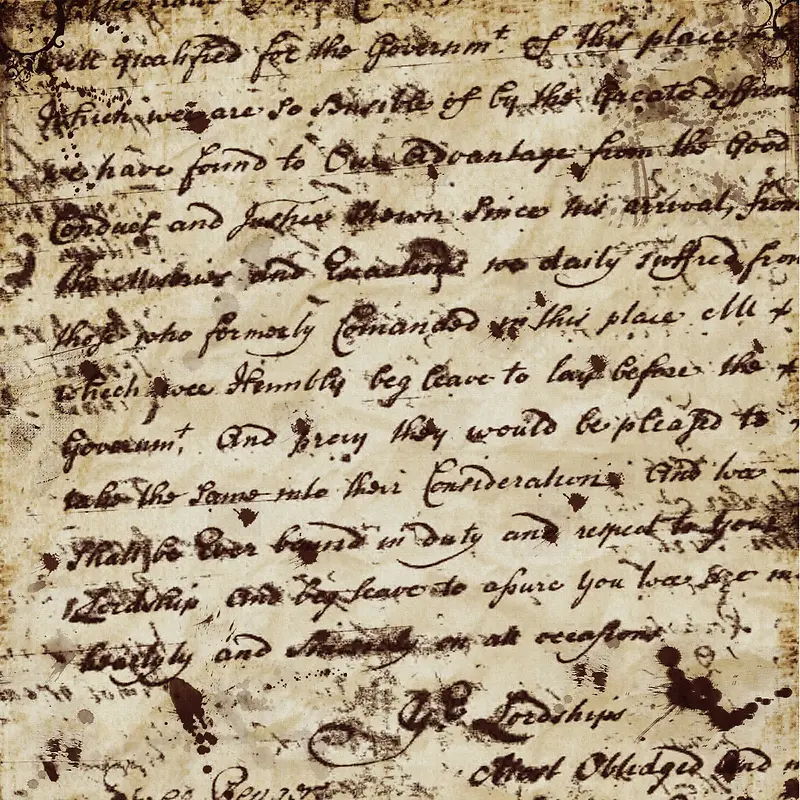 well qualified for the Governmt. of this place
Which wee are so Sensible of by the Greate differen
we have found to Our Advantage from the Good
Conduct and Justice Shewn Since his arrival, from
the Miseries and Exactions we daily suffred from
those who formerly Comanded in this place All
which wee Humbly beg leave to lay before the
Governmt. And pray they would be pleased to
take the Same into their Consideration And wee
Shall be Ever bound in duty and respect to Your
Lordship And beg leave to assure You wee are
heartyly and Sincerely on all occasions
Yr Lordships
Most Obliedged And